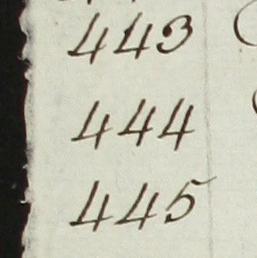 443
444
445